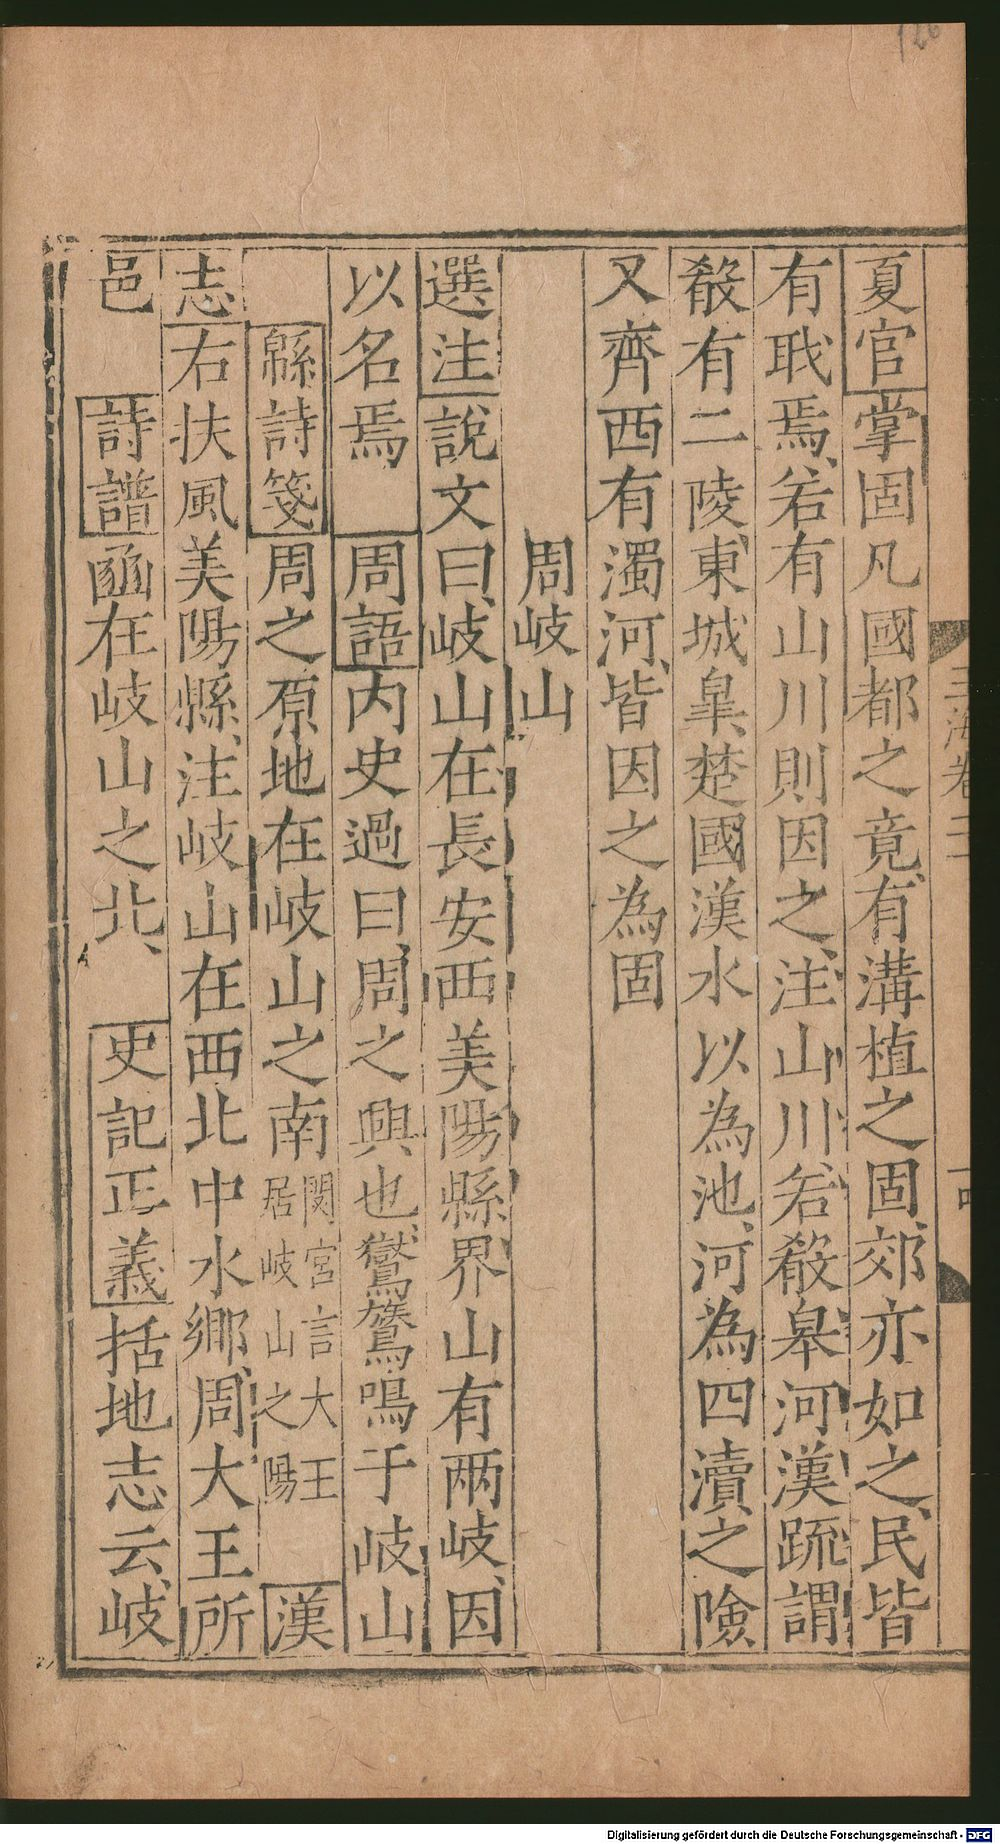 126
夏官掌固凡國都之竟、有溝植之固、郊亦如之、民皆
有職焉、若有山川則因之、注山川若殽皋河漢疏謂
殽有二陵、東城皐、楚國漢水以為池、河為四瀆之險
又齊西有濁河、皆因之為固
周岐山
選注說文曰、岐山在長安西美陽縣界山有兩岐、因
以名焉 周語内史過曰、周之興也、鸑鷟鳴于岐山
緜詩箋周之原、地在岐山之南閟宮言大王居岐山之陽 漢
志右扶風美陽縣、注岐山在西北中水鄉、周大王所
邑 詩譜豳在岐山之北、 史記正義括地志云、岐
Digitalisierung gefördert durch die Deutsche Forschungsgemeinschaft - DFG